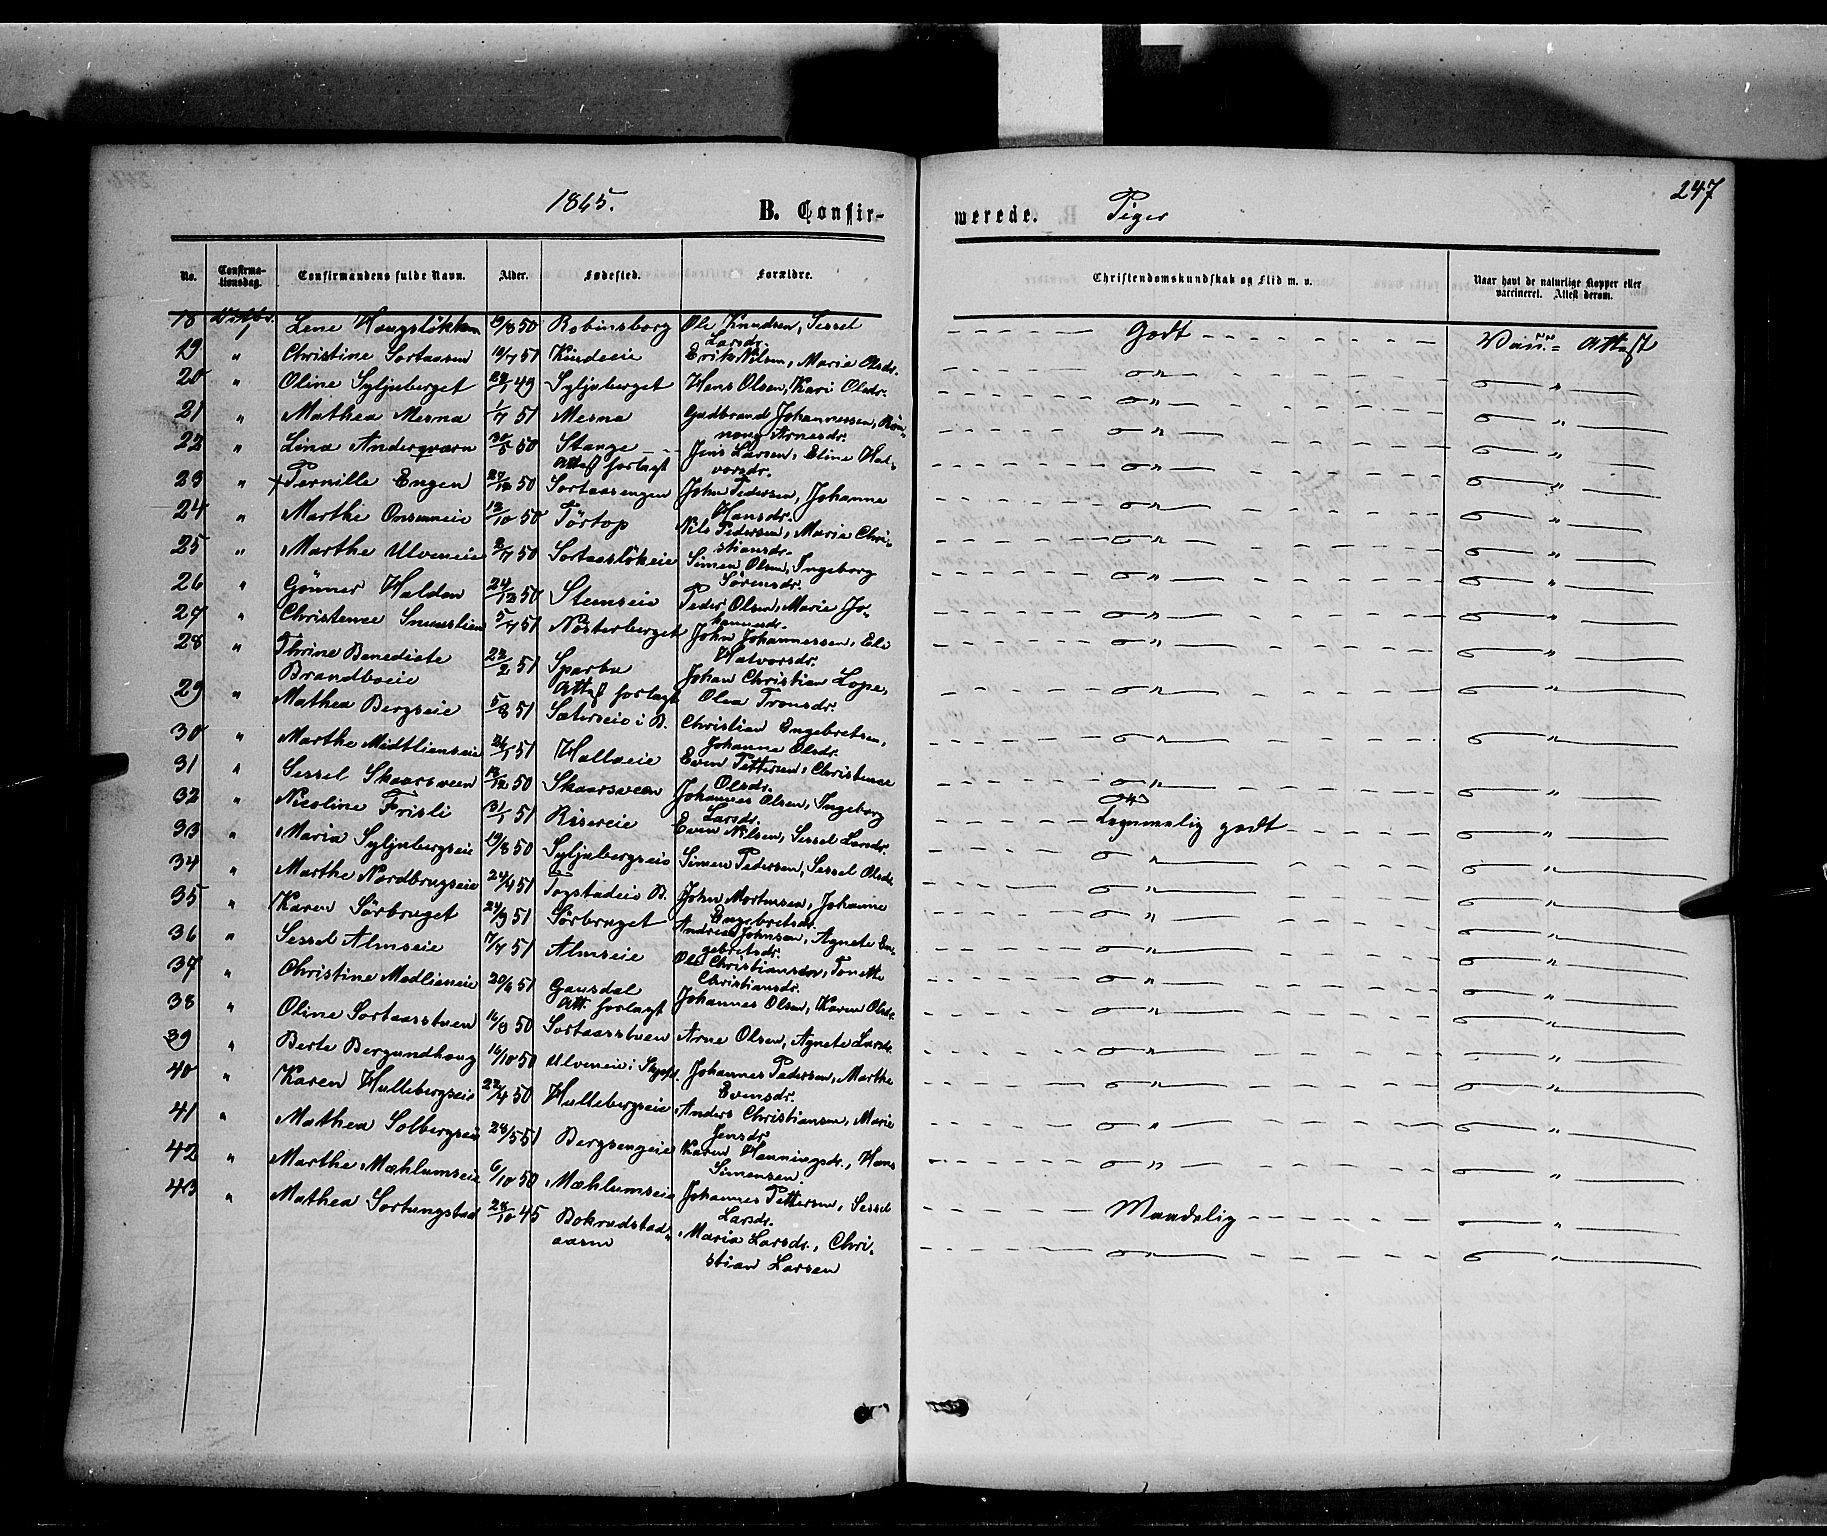 247
1865.
B. Confir-
merede.
Piger
No.
Confirma-
tionsdag.
Confirmandens fulde Navn.
Alder.
Fødested.
Forældre.
Christendomskundskab og Flid m. v.
Naar havt de naturlige Kopper eller
vaccineret. Attest derom.
18 Lene Haugsløkken 19/8 50 Robinsborg Ole Knudsen, Sessel Larsdr. Godt Attest
19 " Christine Sortaasen 51 Kindeeie Erik Nilsen, Marie Olsdr.
20 " Oline Syljuberget 49 Syljuberget Hans Olsen, Kari Olsdr.
21 " Mathea Mesna 51 Mesna Gudbrand Johannessen, Arnesdr.
22 " Lina Anderqværn 50 Stange Attest forlagt Jens Larsen, Eline Halvorsdr.
23 " Pernille Engen 50 Sortaasengen John Pedersen, Johanne Hansdr.
24 " Marthe Onsumeie 12/10 50 Törtop Nils Pedersen, Marie Christiansdr.
25 " Marthe Ulveneie 50 Sortaaslökeie Simen Olsen, Ingeborg Sörensdr.
26 " Gønner Haldon 24/12 50 Stemseie Peder Olsen, Marie Johannesdr.
27 " Christence 5/4 51 Nösterberget John Johannessen, Eli Halvorsdr.
28 " Thrine Benedicte Brandboeie 22/2 51 Sparbu Attest forlagt Johan Christian Lope, Olea Tronsdr.
29 " Mathea Bergseie 5/8 51 Sæterseie i B. Christian Engebretsen, Johanne Olsdr.
30 " Marthe Midtlienseie 51 Halloeie Even Pettersen, Christence Olsdr.
31 " Sessel Skaarsveen 12/12 50 Skaarsveen Johannes Olsen, Ingeborg Larsdr.
32 " Nicoline Frisli 31/1 51 Risereie Even Nilsen, Sessel Larsdr. Temmelig godt
33 " Maria Syljubergseie 19/8 50 Syljubergseie Simen Pedersen, Sessel Olsdr.
34 " Marthe Nordbrugseie 24/4 51 Togstadeie B. John Mortensen, Johanne Engebretsdr.
35 " Karen Sörbruget 24/9 51 Sörbruget Andreas Johnsen, Agnete Engebretsdr.
36 " Sessel Almseie 17/4 51 Almseie Ole Christiansen, Tonette Christiansdr.
37 " Christine Medlieneie 51 Gausdal Att. forlagt Johannes Olsen, Karen Olsdr.
38 " Oline Sortaasstuen 16/9 50 Sortaasstuen Arne Olsen, Agnete Larsdr.
39 " Berte Bergundhaug 16/10 50 Ulveneie i Johannes Pedersen, Marthe Evensdr.
40 " Karen Hullebergseie 22/4 50 Hullebergseie Anders Christiansen, Marie Jensdr.
41 " Mathea Solbergseie 28/5 51 Bergsengeie Karen Henningsdr., Hans Simensen.
42 " Marthe Mæhlumseie 6/10 50 Mæhlumseie Johannes Pettersen, Sessel Larsdr. Maadelig
43 " Mathea Sortungstad 28/10 45 Bokrudstadaasen Maria Larsdr., Christian Larsen